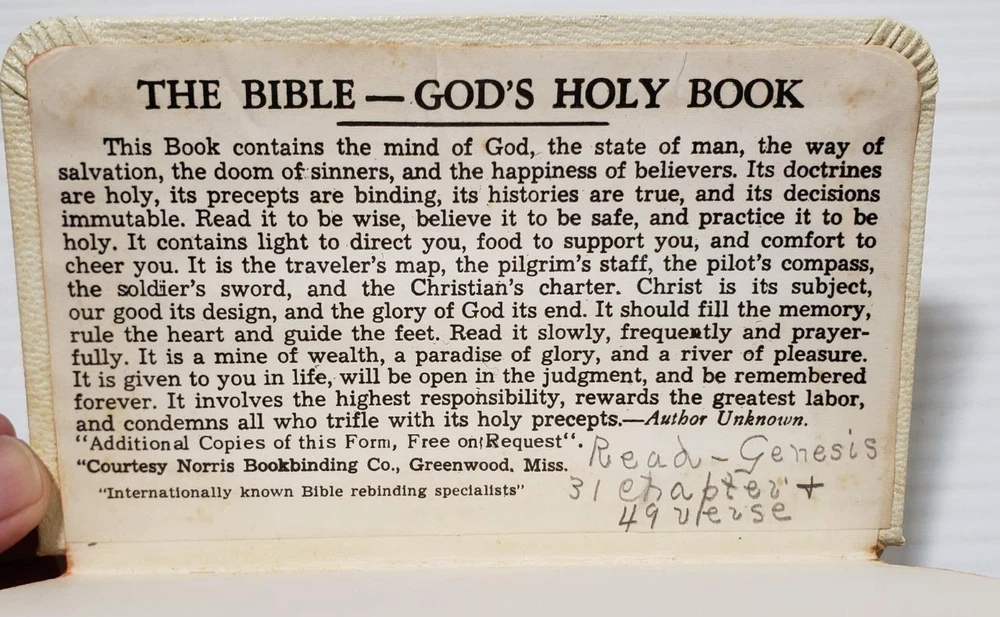 THE BIBLE — GOD'S HOLY BOOK
This Book contains the mind of God, the state of man, the way of
salvation, the doom of sinners, and the happiness of believers. Its doctrines
are holy, its precepts are binding, its histories are true, and its decisions
immutable. Read it to be wise, believe it to be safe, and practice it to be
holy. It contains light to direct you, food to support you, and comfort to
cheer you. It is the traveler's map, the pilgrim's staff, the pilot's compass,
the soldier's sword, and the Christian's charter. Christ is its subject,
our good its design, and the glory of God its end. It should fill the memory,
rule the heart and guide the feet. Read it slowly, frequently and prayer-
fully. It is a mine of wealth, a paradise of glory, and a river of pleasure.
It is given to you in life, will be open in the judgment, and be remembered
forever. It involves the highest responsibility, rewards the greatest labor,
and condemns all who trifle with its holy precepts.—Author Unknown.
"Additional Copies of this Form, Free on Request".
"Courtesy Norris Bookbinding Co., Greenwood, Miss.
"Internationally known Bible rebinding specialists"
Read - Genesis
31 chapter +
49 verse